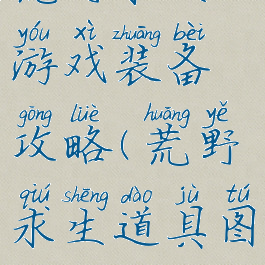 yóu xì zhuāng bèi
游戏装备
gōng lüè huāng yě
攻略(荒野
qiú shēng dào jù tú
求生道具图